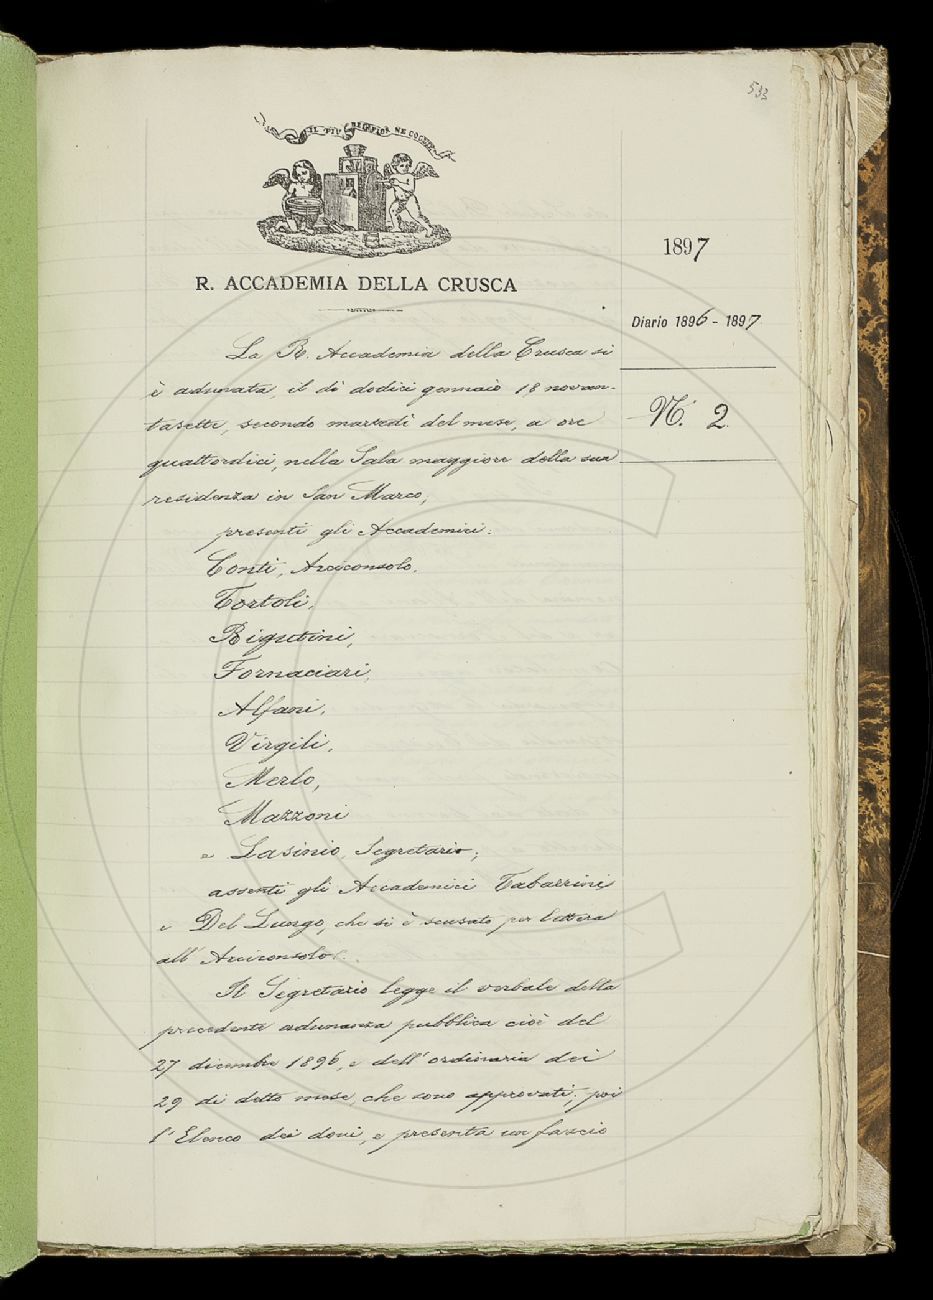 533
IL PIÙ BEL FIOR NE COGLIE
1897
R. ACCADEMIA DELLA CRUSCA
Diario 1896 - 1897
N.° 2
La R. Accademia della Crusca si
è adunata, il dì dodici gennaio 18 novan-
tasette, secondo martedì del mese, a ore
quattordici, nella Sala maggiore della sua
residenza in San Marco,
presenti gli Accademici:
Conti, Arciconsolo,
Tortoli,
Rigutini,
Fornaciari,
Alfani,
Virgili,
Merlo,
Mazzoni
e Lasinio, Segretario;
assenti gli Accademici Tabarrini
e Del Lungo, che si è scusato per lettera
all'Arciconsolo.
Il Segretario legge il verbale della
precedente adunanza pubblica cioè del
27 dicembre 1896, e dell'ordinaria dei
29 di detto mese, che sono approvati; poi
l'Elenco dei doni, e presenta un fascio